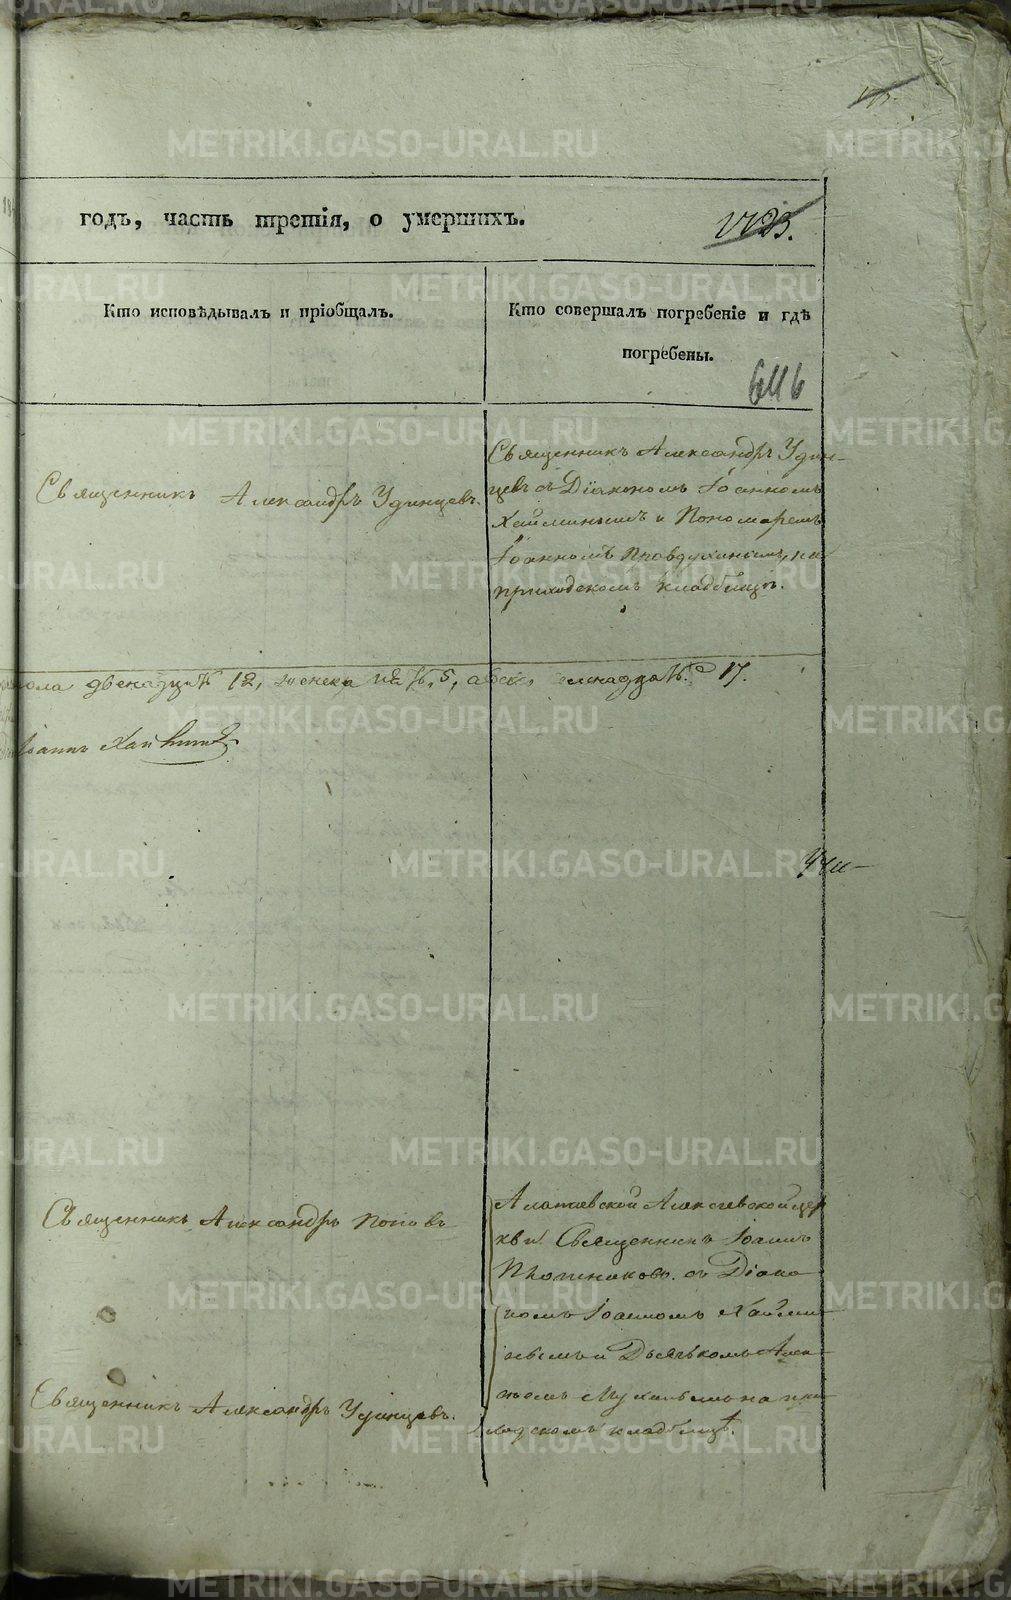 годъ, часть третія, о умершихъ.
Кто исповѣдывалъ и пріобщалъ.
Кто совершалъ погребеніе и гдѣ
погребены.
6116
Священникъ Александръ Удинцевъ.
Священникъ Александръ Удин-
цевъ съ Діакономъ Іоанномъ
Хайминымъ и Пономаремъ
Іоанномъ на
приходскомъ кладбищѣ.
пола двенадцать 12, женска пять, 5, а всего семнадцать 17.
Іоаннъ Хайминъ
Священникъ Александръ Поповъ
Алапаевской Алексіевской цер
кви Священникъ Іоаннъ
съ Діако
номъ Іоанномъ Хайми
нымъ и Дьячкомъ
на при
ходскомъ кладбищѣ.
Священникъ Александръ Удинцевъ.
METRIKI.GASO-URAL.RU